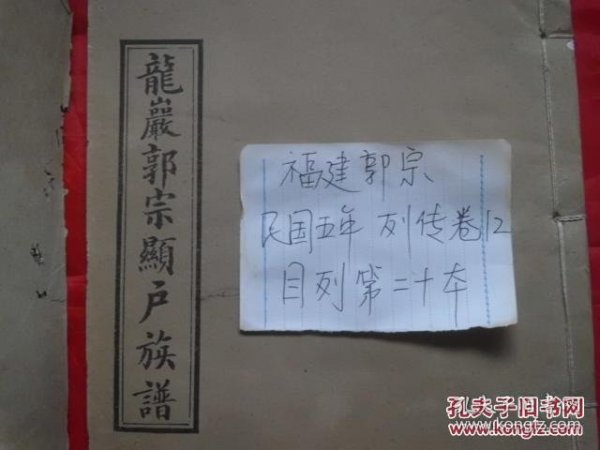 龍巖郭宗顯戶族譜
福建郭宗
民国五年 列传卷12
目列第二十本
孔夫子旧书网
www.kongfz.com